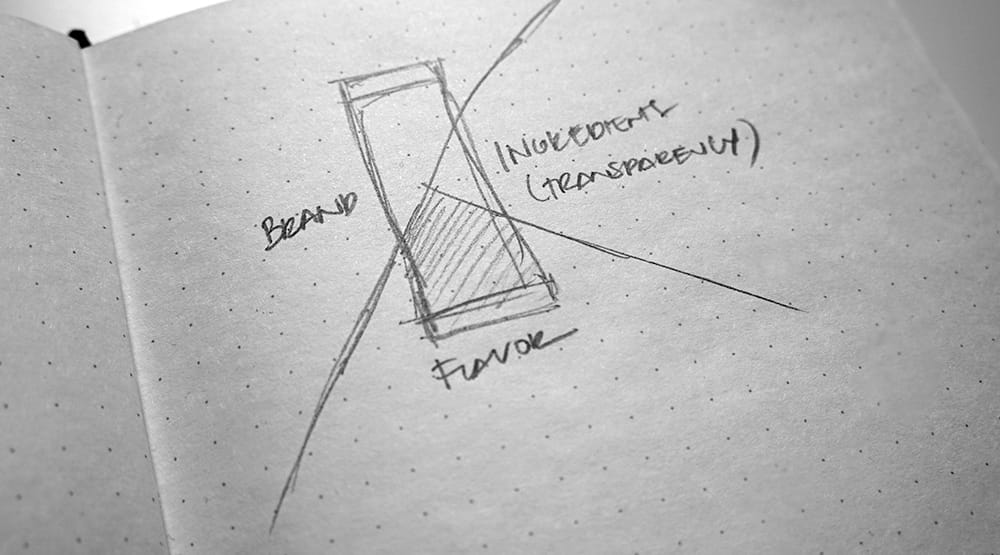 BRAND
INGREDIENTS
(TRANSPARENCY)
FLAVOR